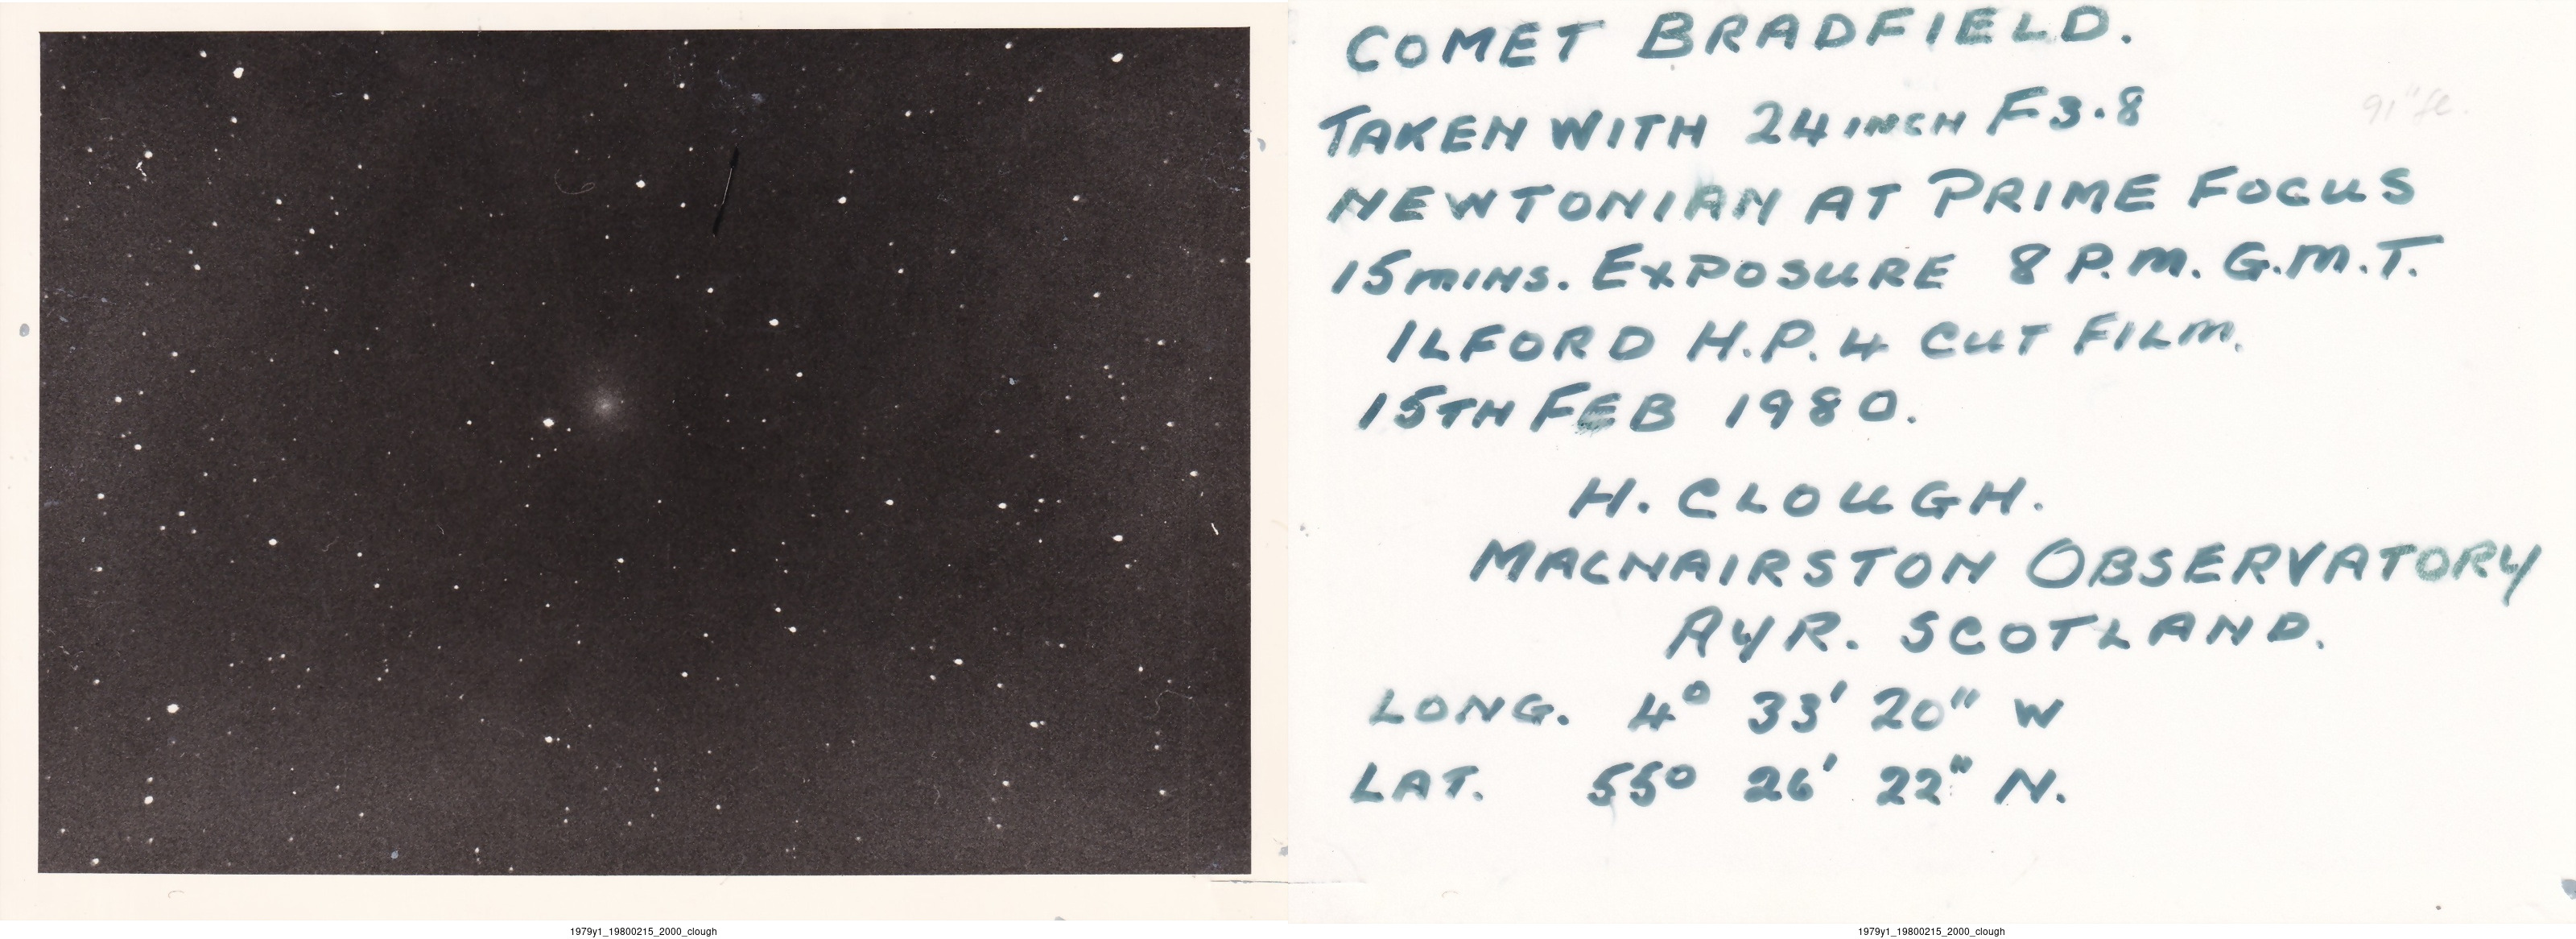 COMET BRADFIELD.
TAKEN WITH 24 INCH F3.8
91" fl.
NEWTONIAN AT PRIME FOCUS
15 MINS. EXPOSURE 8 P.M. G.M.T.
ILFORD H.P.4 CUT FILM.
15TH FEB 1980.
H. CLOUGH.
MACNAIRSTON OBSERVATORY
AYR. SCOTLAND.
LONG. 4° 33' 20" W
LAT. 55° 26' 22" N.
1979y1_19800215_2000_clough
1979y1_19800215_2000_clough